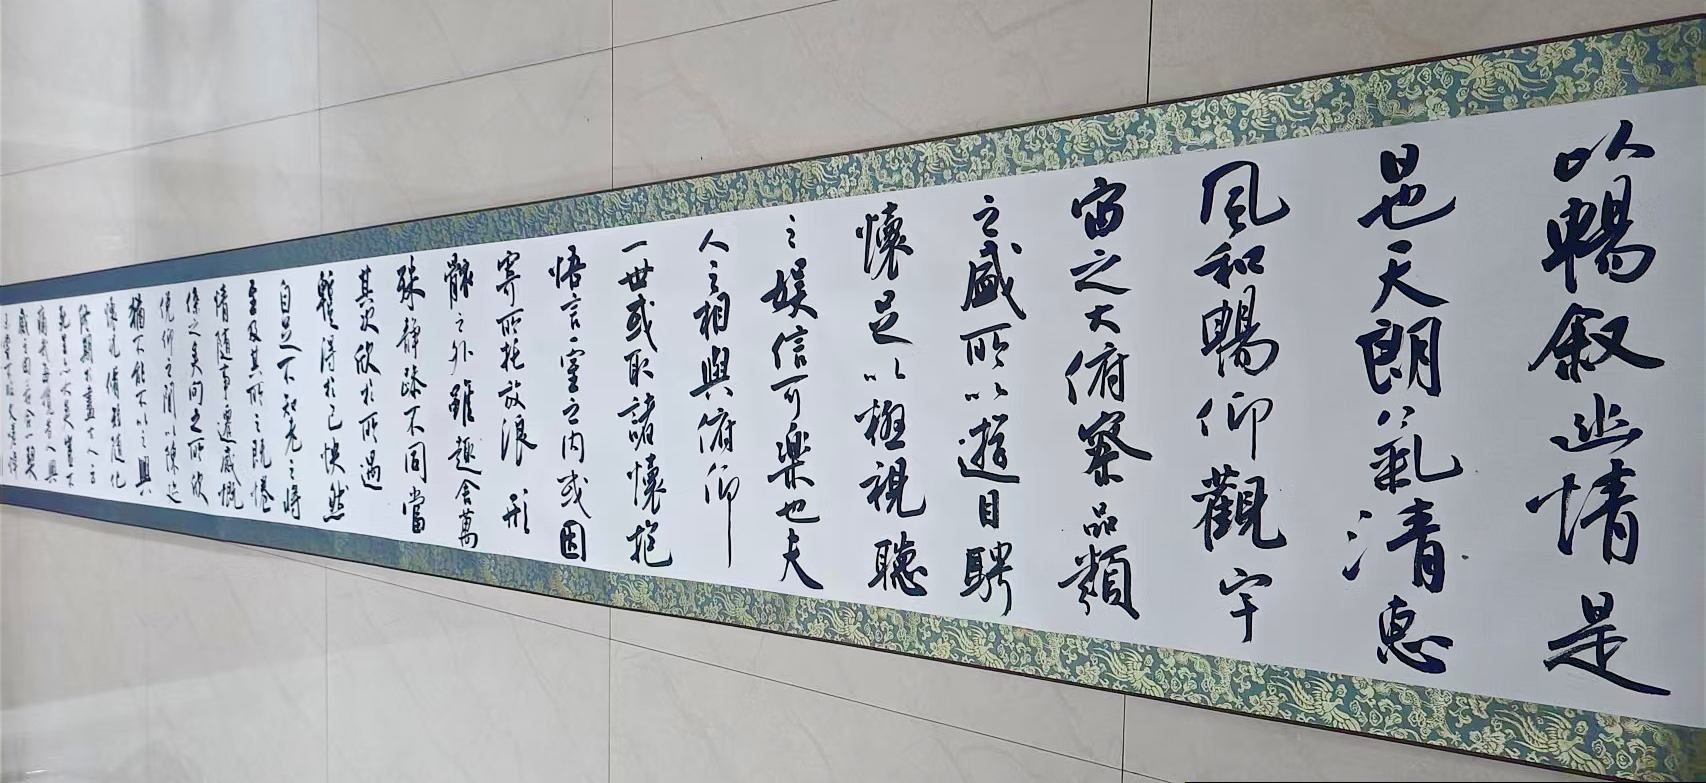 以暢敘幽情是
日也天朗氣清惠
風和暢仰觀宇
宙之大俯察品類
之盛所以遊目騁
懷足以極視聽
之娛信可樂也夫
人之相與俯仰
一世或取諸懷抱
悟言一室之內或因
寄所託放浪形
骸之外雖趣舍萬
殊靜躁不同當
其欣於所遇
暫得於己快然
自足不知老之將
至及其所之既惓
情隨事遷感慨
係之矣向之所欣
俛仰之間以為陳迹
猶不能不以之興
懷況脩短隨化
終期於盡古人云
死生亦大矣豈不
痛哉每攬昔人興
感之由若合一契